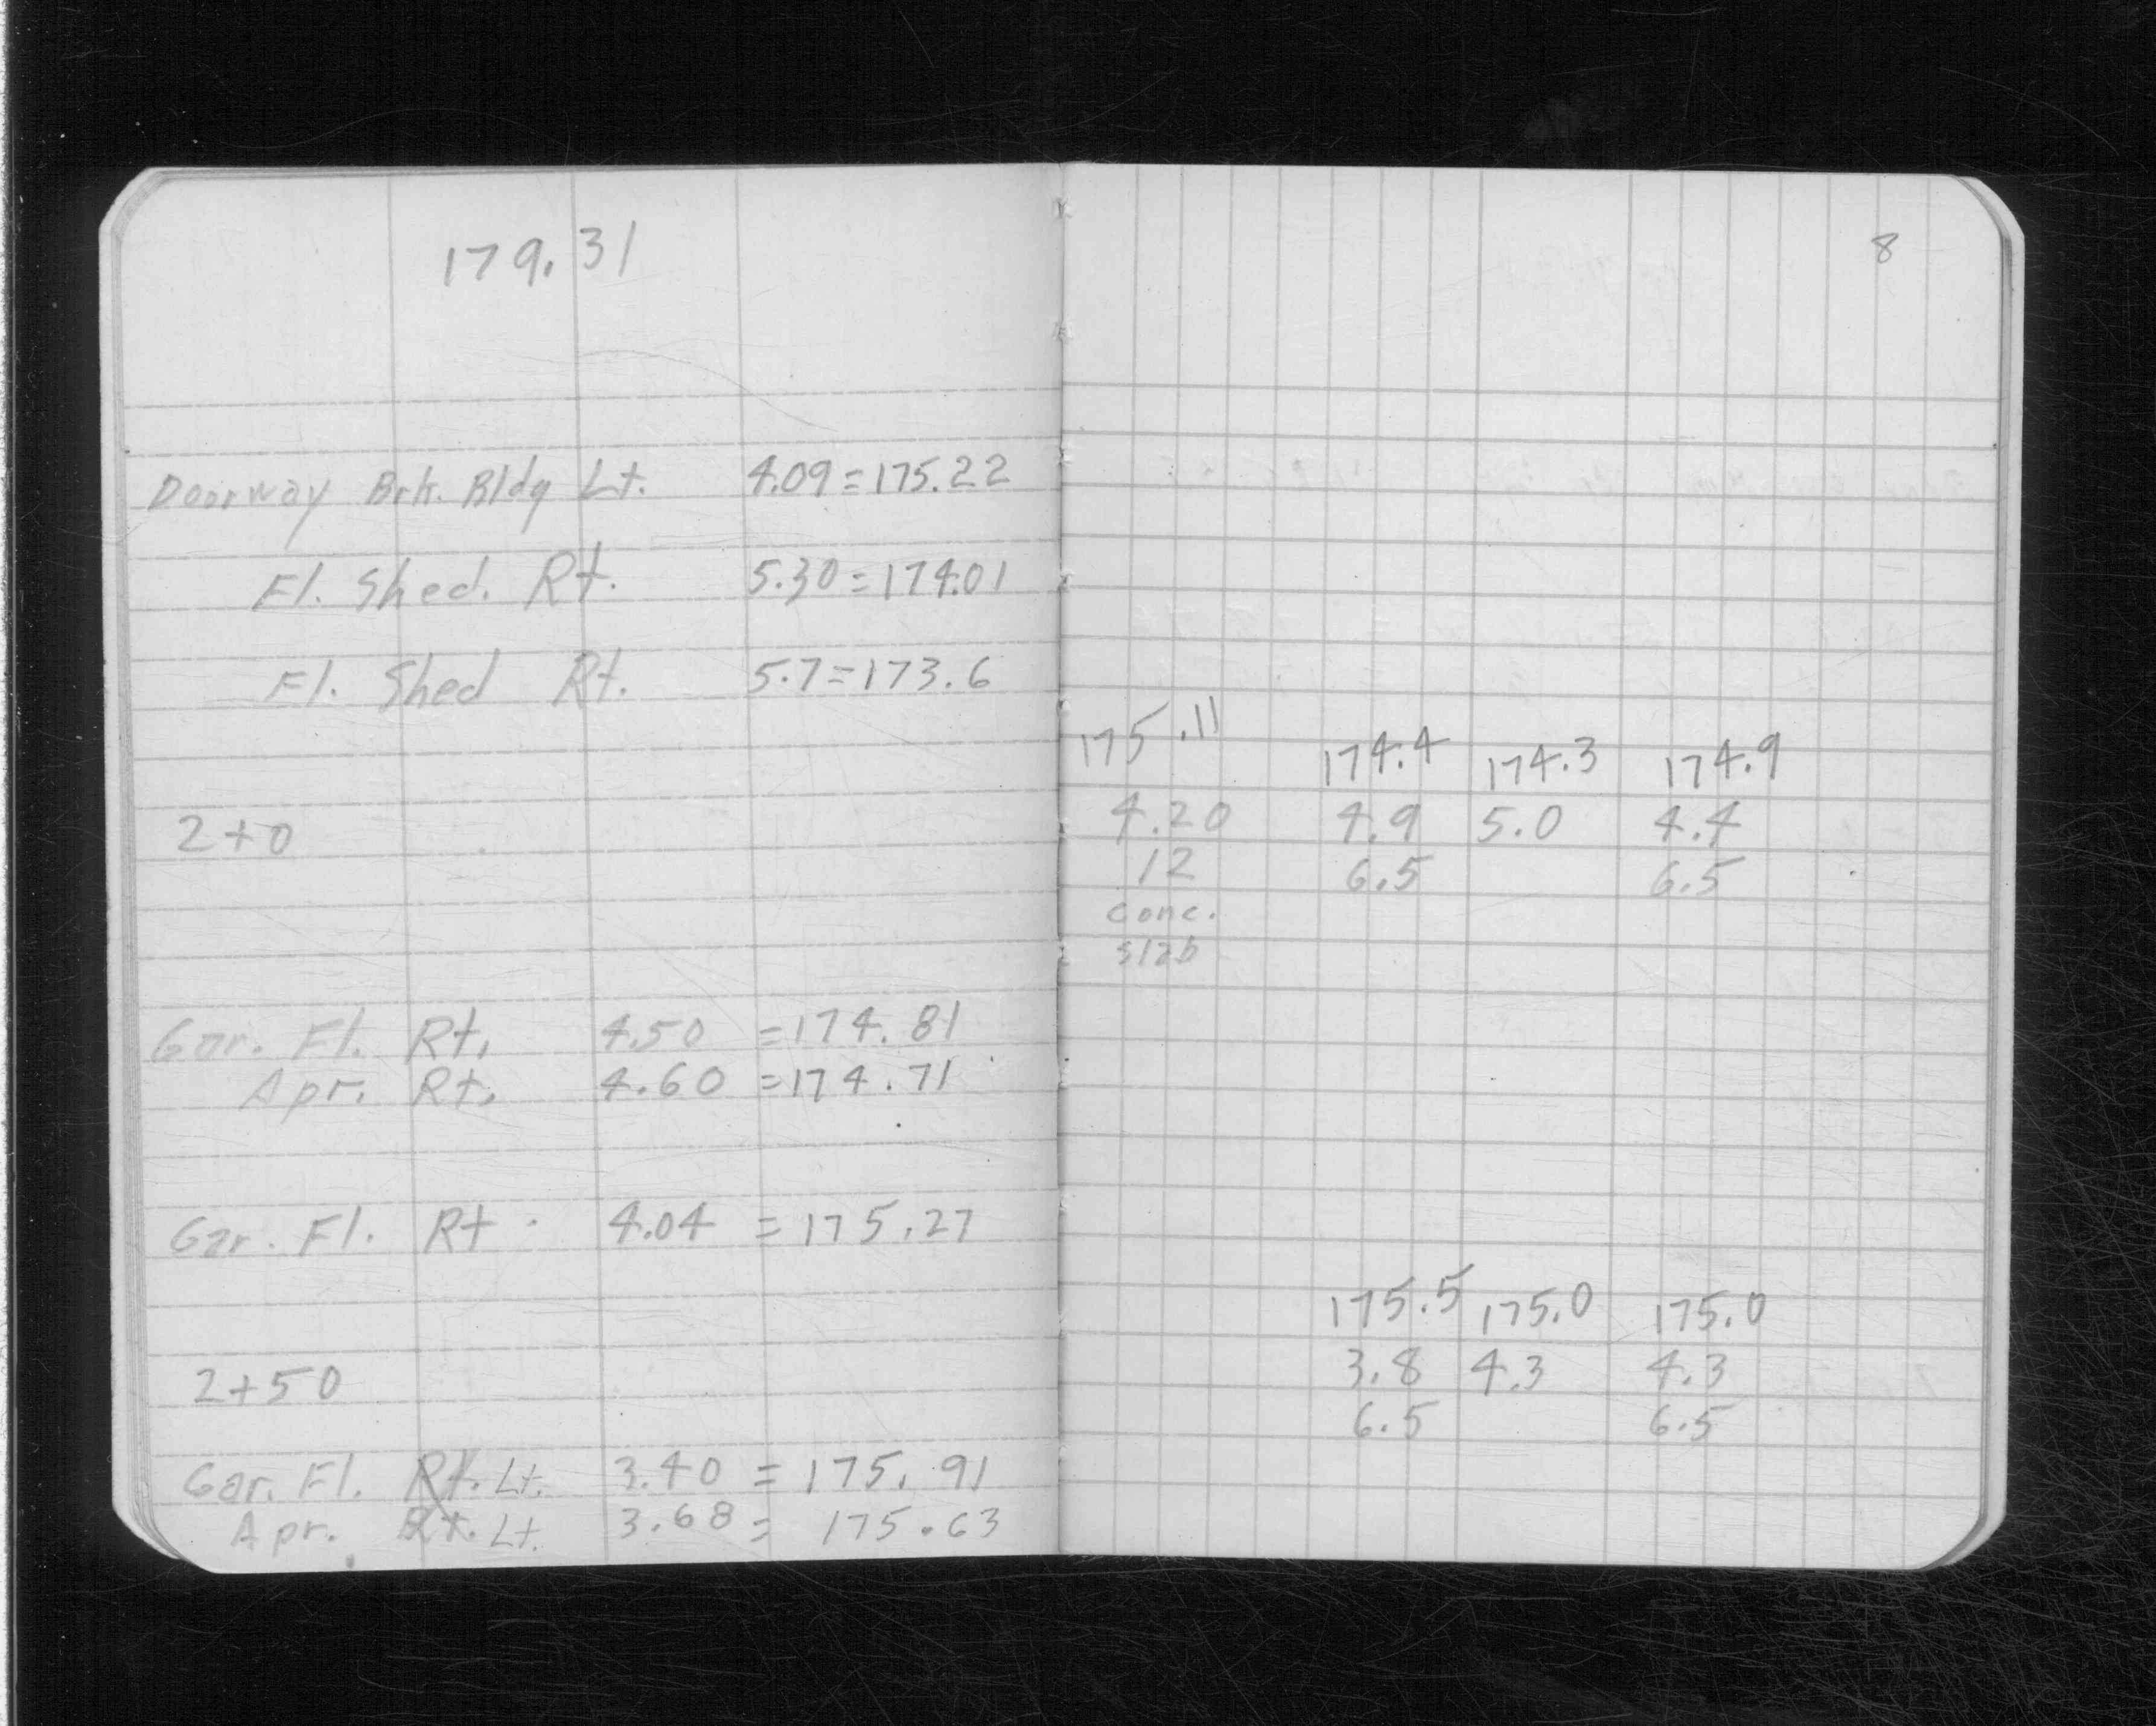 179.31
Doorway Brk. Bldg Lt. 4.09=175.22
Fl. Shed. Rt. 5.30=174.01
Fl. Shed Rt. 5.7=173.6
2+0
Gar. Fl. Rt. 4.50 =174.81
Apr. Rt. 4.60 =174.71
Gar. Fl. Rt. 4.04 =175.27
2+50
Gar. Fl. Rt. Lt. 3.40 = 175.91
Apr. Rt. Lt. 3.68= 175.63
8
175.11 174.4 174.3 174.9
4.20 4.9 5.0 4.4
12 6.5 6.5
conc.
slab
175.5 175.0 175.0
3.8 4.3 4.3
6.5 6.5